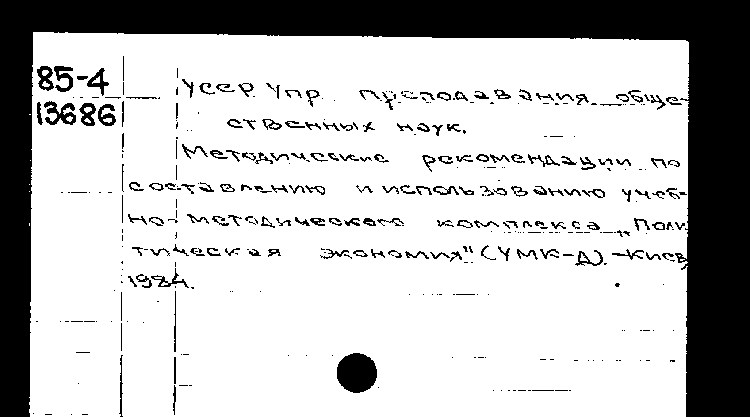 85-4
13686
УССР Упр преподавания обще-
ственных наук.
Методические рекомендации по
составлению и использованию учеб-
но-методического комплекса „Поли
тическая экономия" (УМК-Д). -Киев,
1984.